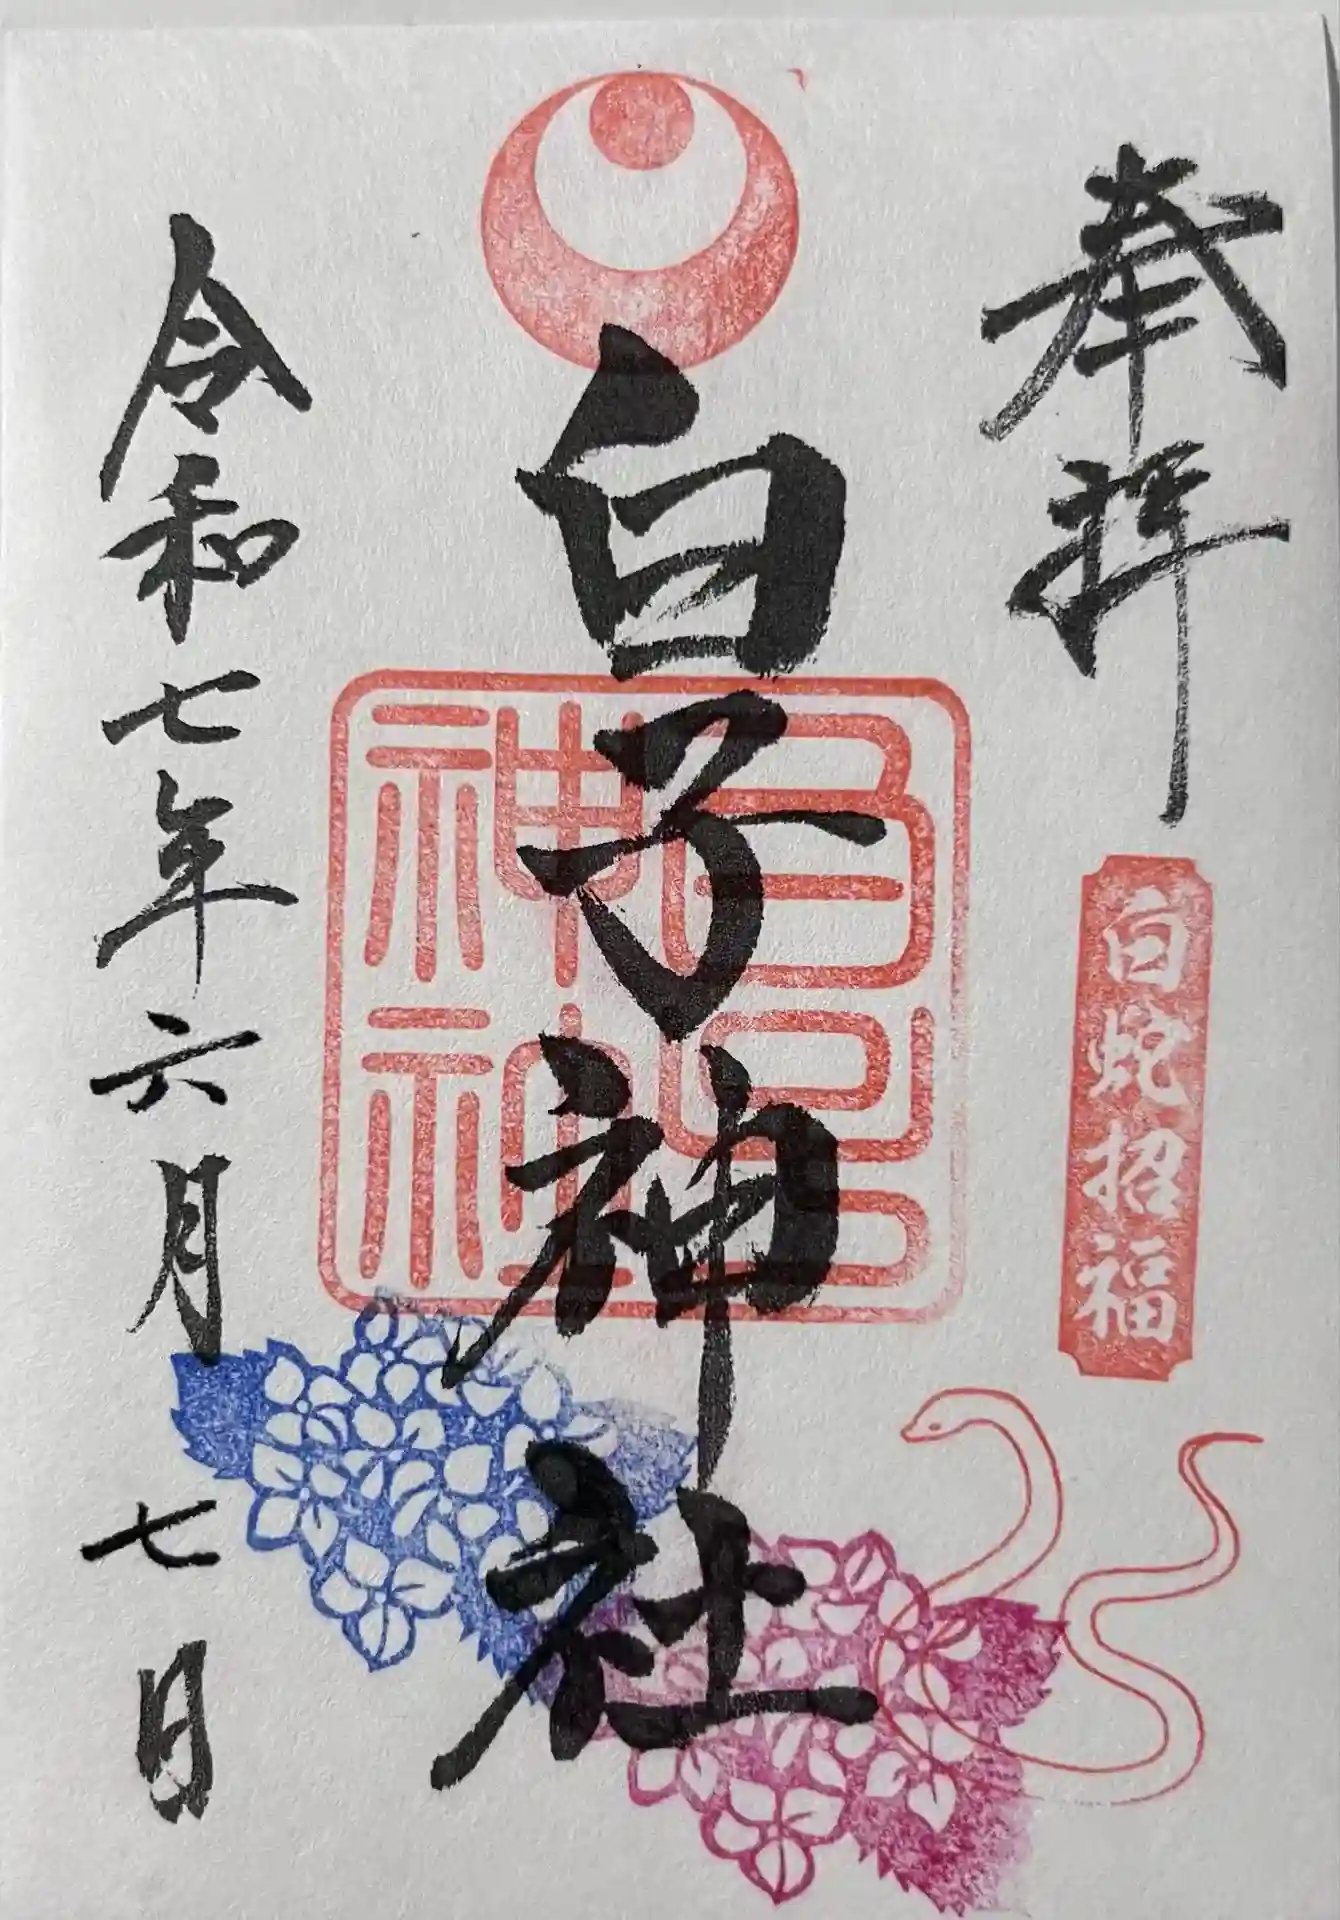 奉拝
白蛇招福
白子神社
令和七年六月七日